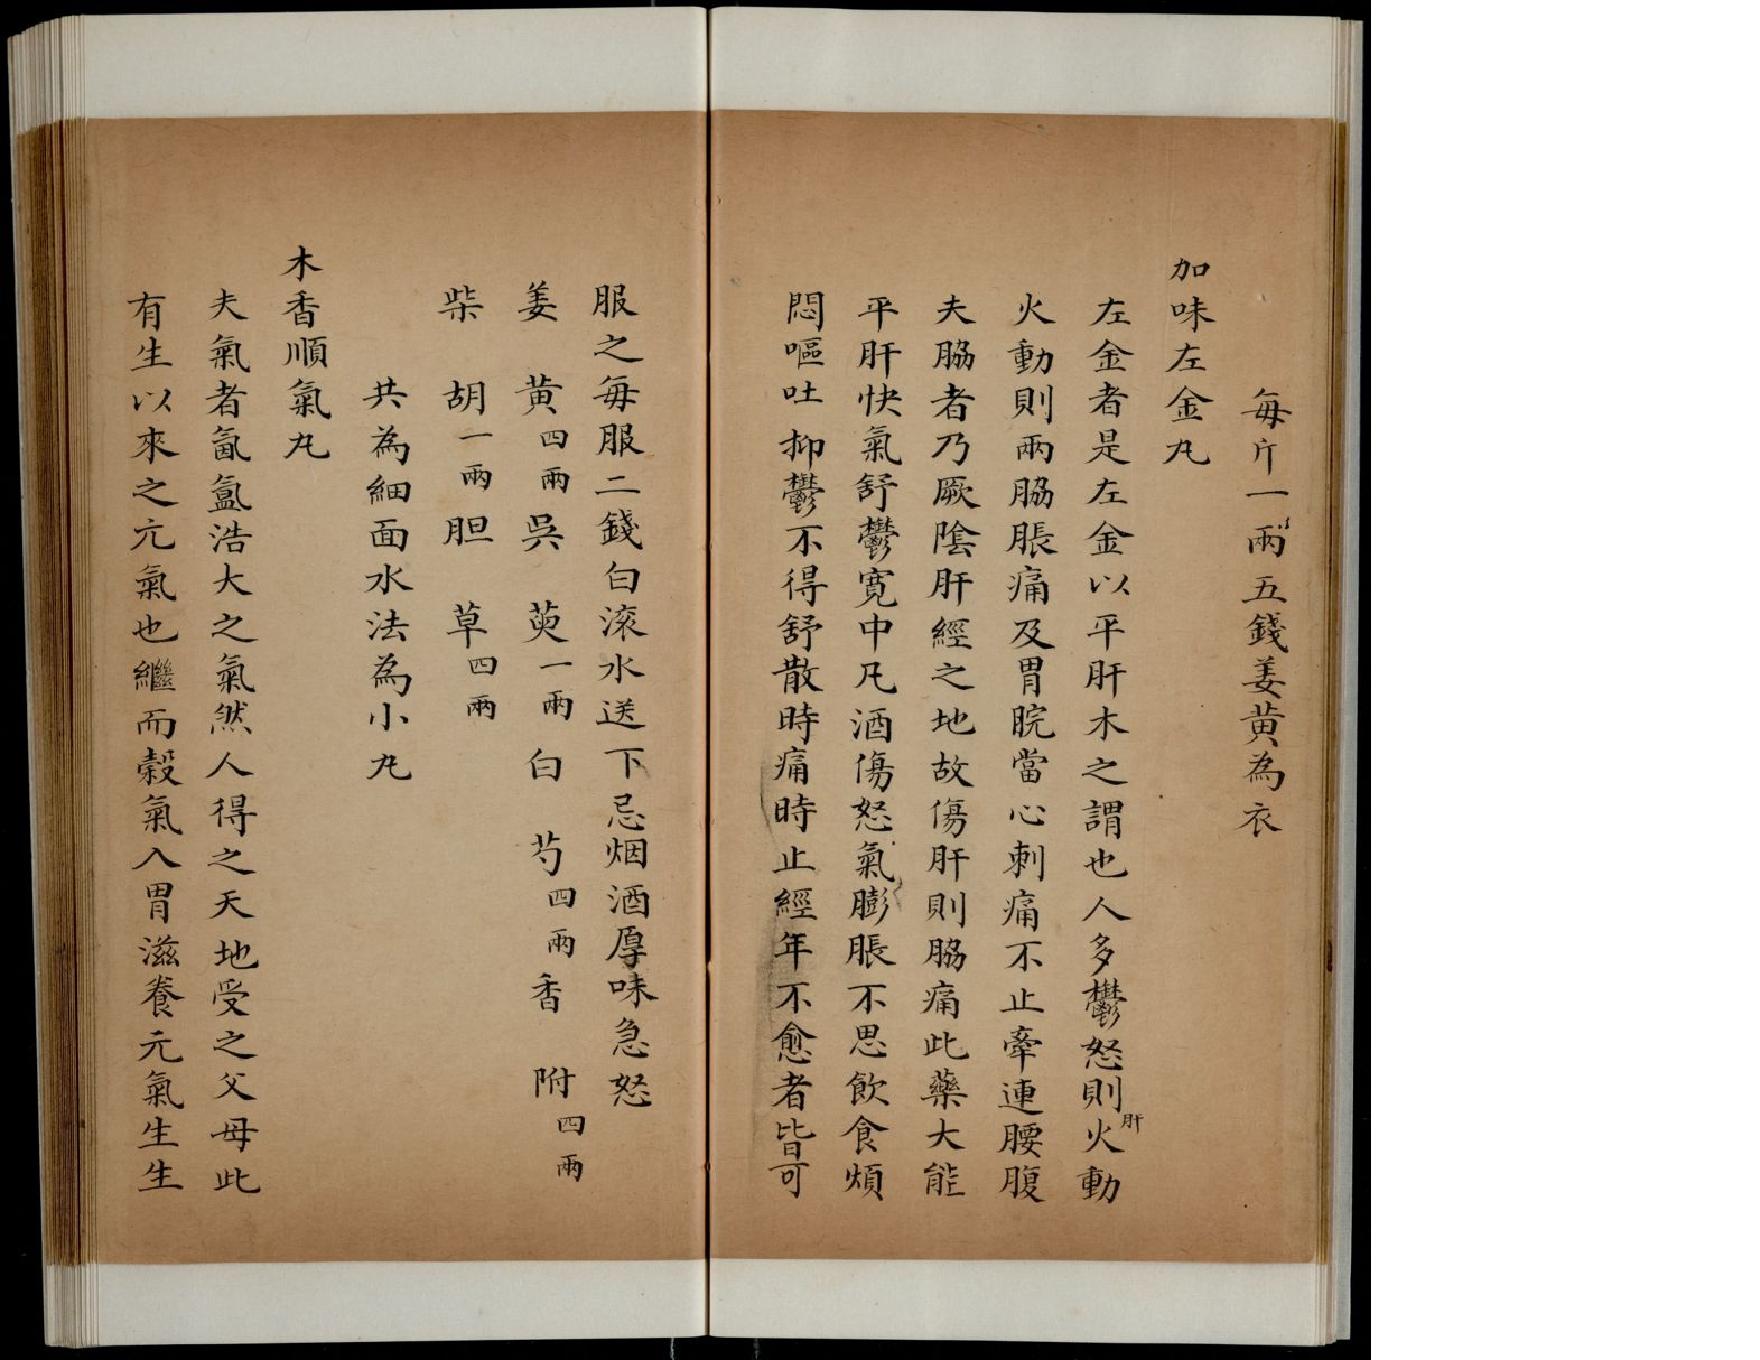 每斤一兩五錢姜黃為衣
加味左金丸
左金者是左金以平肝木之謂也人多鬱怒則肝火動
火動則兩脇脹痛及胃脘當心刺痛不止牽連腰腹
夫脇者乃厥陰肝經之地故傷肝則脇痛此藥大能
平肝快氣舒鬱寬中凡酒傷怒氣膨脹不思飲食煩
悶嘔吐抑鬱不得舒散時痛時止經年不愈者皆可
服之每服二錢白滚水送下忌烟酒厚味急怒
姜黃四兩吳萸一兩白芍四兩香附四兩
柴胡一兩胆草四兩
共為細面水法為小丸
木香順氣丸
夫氣者氤氲浩大之氣然人得之天地受之父母此
有生以來之元氣也繼而穀氣入胃滋養元氣生生